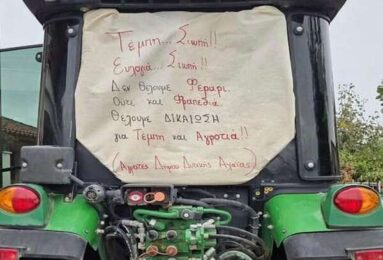 Τέμπη... Σιωπή!!
Ευλογιά... Σιωπή!!
Δεν θέλουμε Φεράρι
Ούτε και Φραπέδια.
Θέλουμε ΔΙΚΑΙΩΣΗ
για Τέμπη και Αγροτιά!!
(Αγρότες Δήμου Δυτικής Αχαΐας)